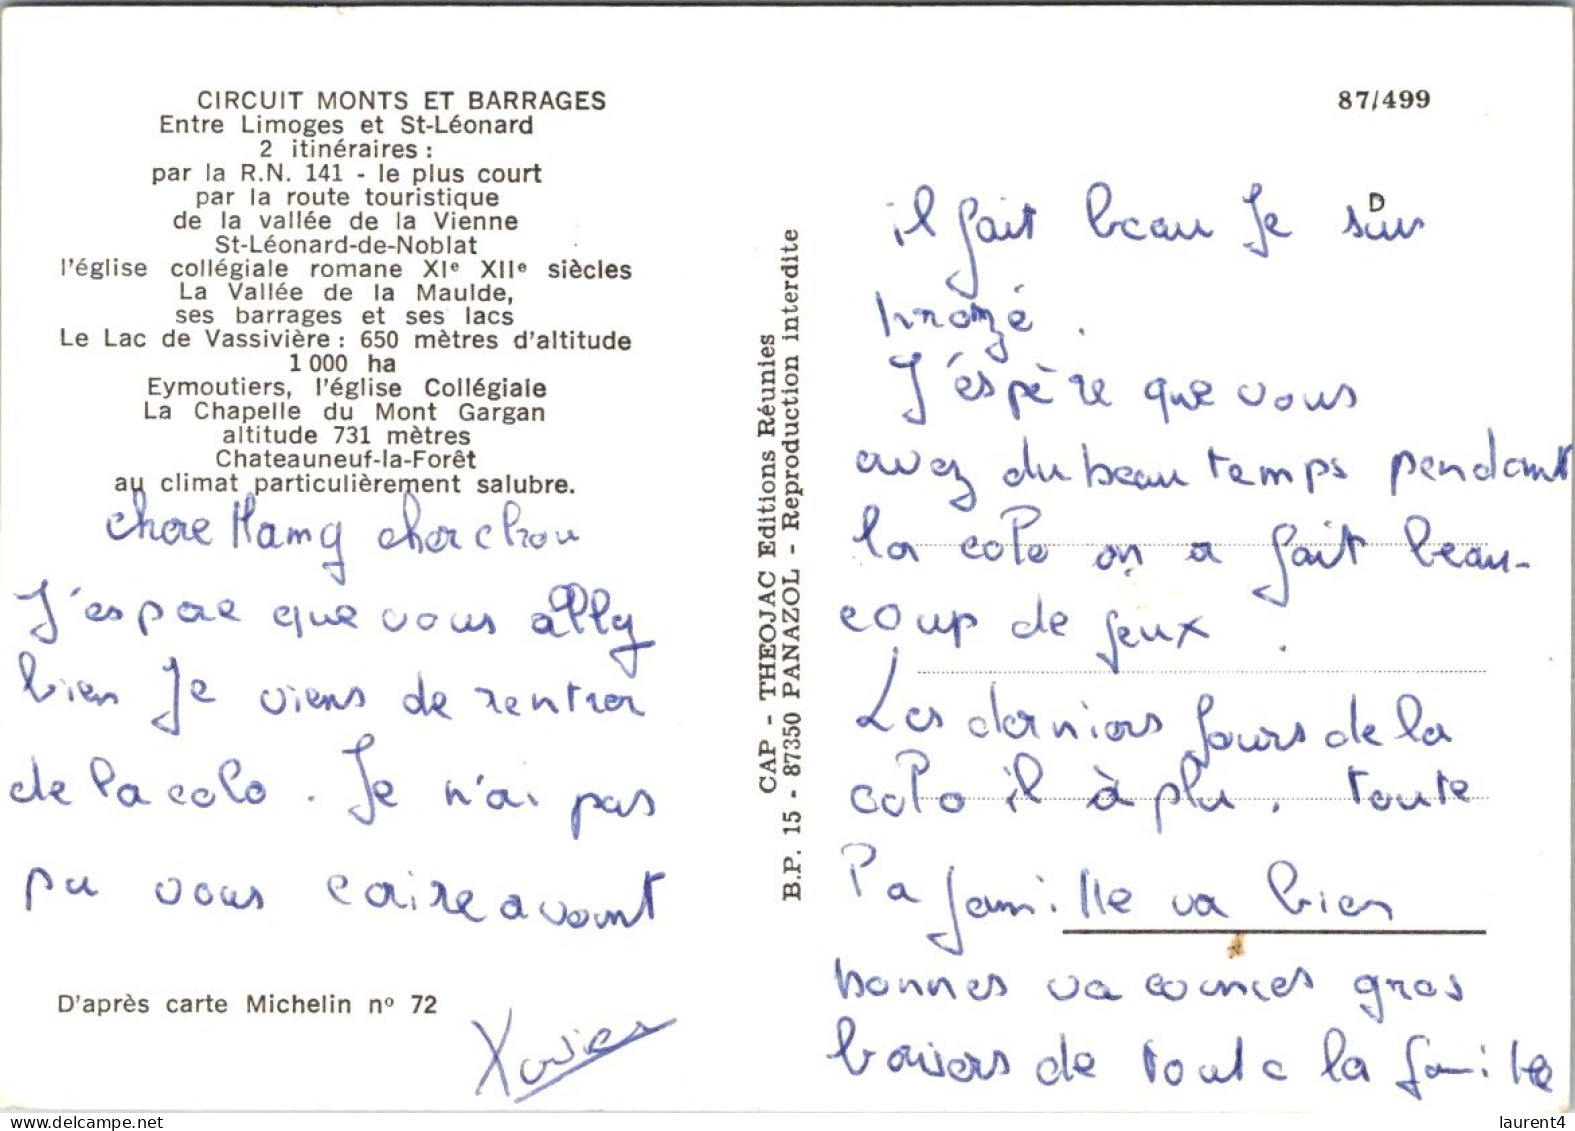 CIRCUIT MONTS ET BARRAGES
Entre Limoges et St-Léonard
2 itinéraires :
par la R.N. 141 - le plus court
par la route touristique
de la vallée de la Vienne
St-Léonard-de-Noblat
l'église collégiale romane XIe XIIe siècles
La Vallée de la Maulde,
ses barrages et ses lacs
Le Lac de Vassivière : 650 mètres d'altitude
1 000 ha
Eymoutiers, l'église Collégiale
La Chapelle du Mont Gargan
altitude 731 mètres
Chateauneuf-la-Forêt
au climat particulièrement salubre.
chere Mamy cher chou
J'espere que vous ally
bien Je viens de rentrer
de la colo. Je n'ai pas
pu vous ecrire avant
D'après carte Michelin nº 72
Xavier
CAP - THEOJAC Editions Réunies
B.P. 15 - 87350 PANAZOL - Reproduction interdite
87/499
D
il fait beau Je suis
bronzé.
J'éspère que vous
avez du beau temps pendant
la colo on a fait beau-
coup de jeux.
Les derniers jours de la
colo il à plu. toute
la famille va bien
bonnes vacances gros
baisers de toute la famille
laurent4